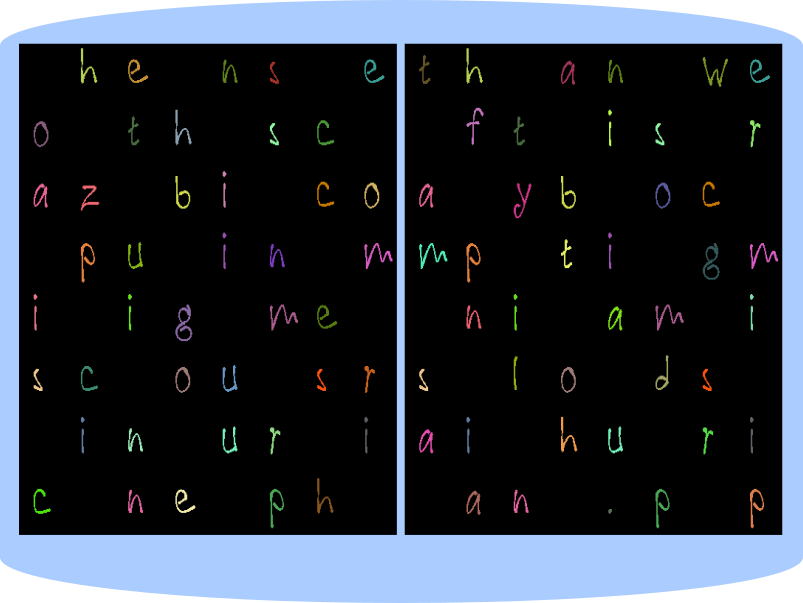 h e n s e
o t h s c
a z b i c o
p u i n m
i i g m e
s c o u s r
i n u r i
c n e p h
t h a n w e
f t i s r
a y b o c
m p t i g m
n i a m i
s l o d s
a i h u r i
a n . p p